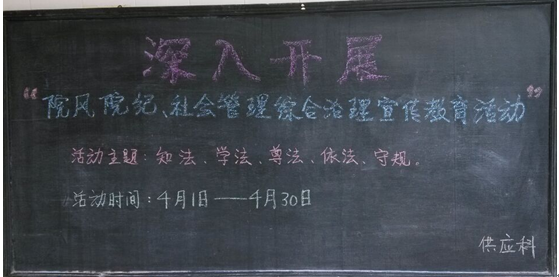 深入开展
“院风院纪、社会管理综合治理宣传教育活动”
活动主题：知法、学法、尊法、依法、守规。
活动时间：4月1日——4月30日
供应科